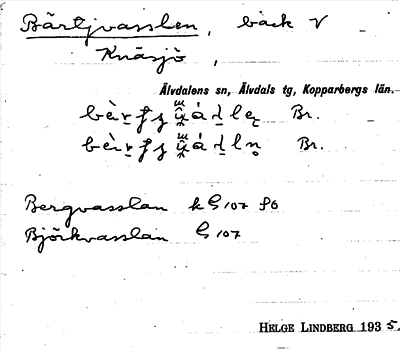 Bärtjvasslen, bäck V
Knäsjö,
Älvdalens sn, Älvdals tg, Kopparbergs län.
Br.
Br.
Bergvasslan k G 107 50
Björkvasslan G 107
HELGE LINDBERG 1935.